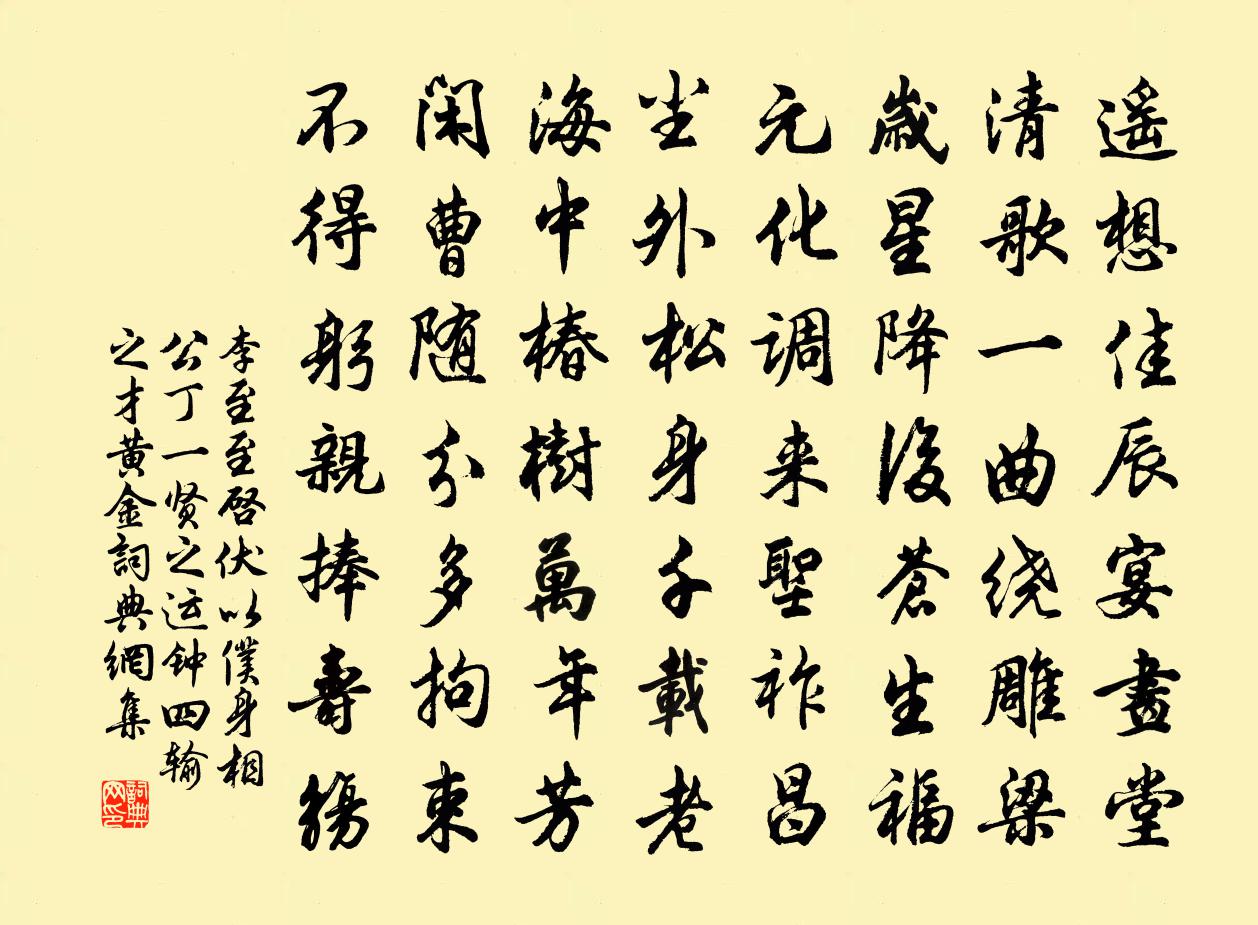 遥想佳辰宴畫堂
清歌一曲绕雕梁
歲星降後蒼生福
元化调来聖祚昌
坐外松身千載老
海中椿樹萬年芳
闲曹随分多拘束
不得躬親捧壽觴
李至至启伏以僕身相
公丁一贤之运钟四输
之才黄金詞典網集
詞典网印